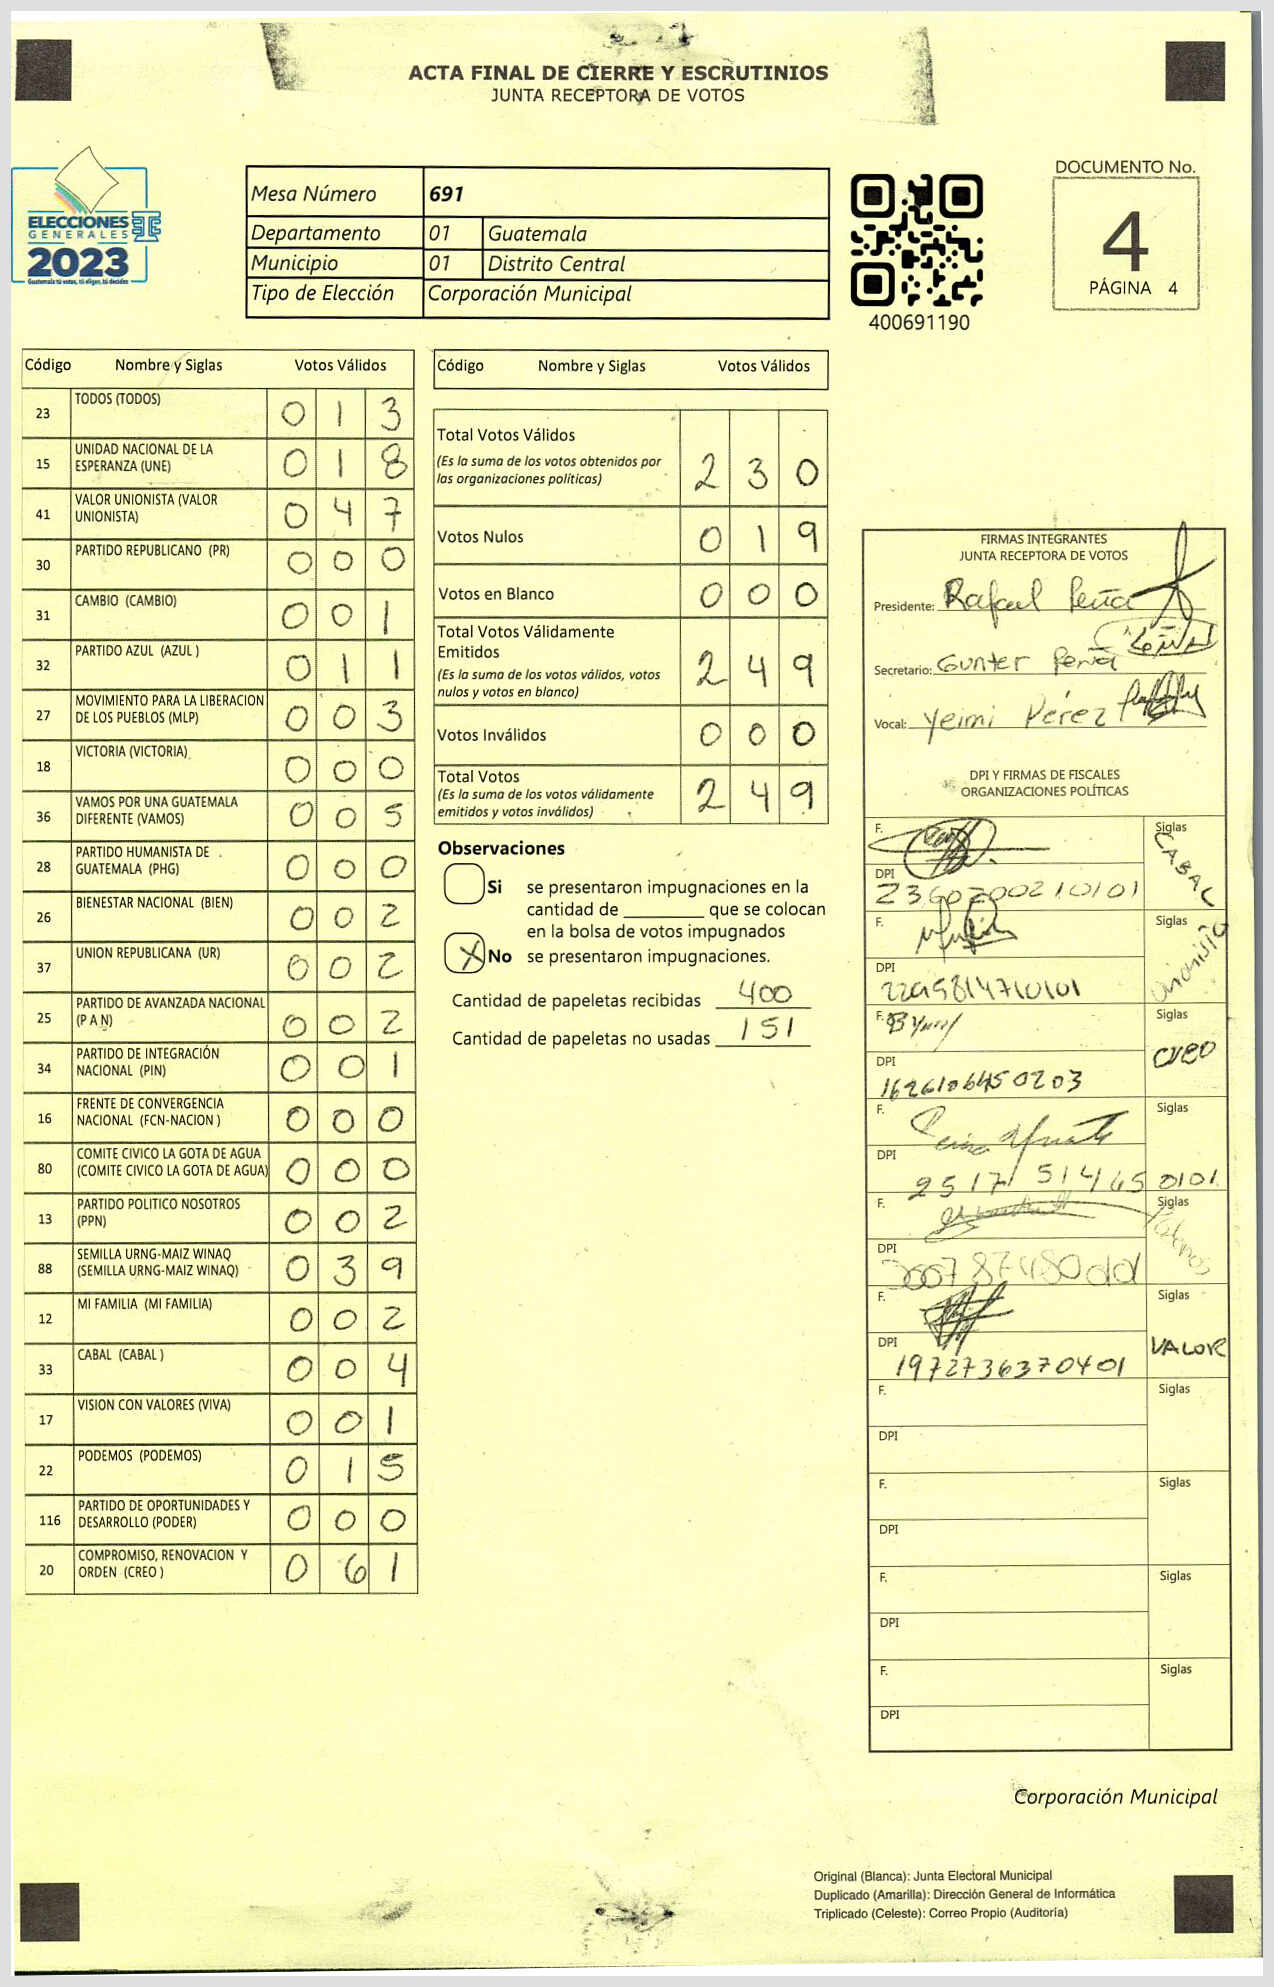 ACTA FINAL DE CIERRE Y ESCRUTINIOS
JUNTA RECEPTORA DE VOTOS
ELECCIONES
GENERALES
2023
Guatemala tú votas, tú eliges, tú decides
Mesa Número 691
Departamento 01 Guatemala
Municipio 01 Distrito Central
Tipo de Elección Corporación Municipal
400691190
DOCUMENTO No.
4
PÁGINA 4
Código Nombre y Siglas Votos Válidos
23 TODOS (TODOS) 0 1 3
15 UNIDAD NACIONAL DE LA
ESPERANZA (UNE) 0 1 8
41 VALOR UNIONISTA (VALOR
UNIONISTA) 0 4 7
30 PARTIDO REPUBLICANO (PR) 0 0 0
31 CAMBIO (CAMBIO) 0 0 1
32 PARTIDO AZUL (AZUL ) 0 1 1
27 MOVIMIENTO PARA LA LIBERACION
DE LOS PUEBLOS (MLP) 0 0 3
18 VICTORIA (VICTORIA) 0 0 0
36 VAMOS POR UNA GUATEMALA
DIFERENTE (VAMOS) 0 0 5
28 PARTIDO HUMANISTA DE
GUATEMALA (PHG) 0 0 0
26 BIENESTAR NACIONAL (BIEN) 0 0 2
37 UNION REPUBLICANA (UR) 0 0 2
25 PARTIDO DE AVANZADA NACIONAL
(P A N) 0 0 2
34 PARTIDO DE INTEGRACIÓN
NACIONAL (PIN) 0 0 1
16 FRENTE DE CONVERGENCIA
NACIONAL (FCN-NACION ) 0 0 0
80 COMITE CIVICO LA GOTA DE AGUA
(COMITE CIVICO LA GOTA DE AGUA) 0 0 0
13 PARTIDO POLITICO NOSOTROS
(PPN) 0 0 2
88 SEMILLA URNG-MAIZ WINAQ
(SEMILLA URNG-MAIZ WINAQ) 0 3 9
12 MI FAMILIA (MI FAMILIA) 0 0 2
33 CABAL (CABAL ) 0 0 4
17 VISION CON VALORES (VIVA) 0 0 1
22 PODEMOS (PODEMOS) 0 1 5
116 PARTIDO DE OPORTUNIDADES Y
DESARROLLO (PODER) 0 0 0
20 COMPROMISO, RENOVACION Y
ORDEN (CREO ) 0 6 1
Código Nombre y Siglas Votos Válidos
Total Votos Válidos
(Es la suma de los votos obtenidos por
las organizaciones políticas) 2 3 0
Votos Nulos 0 1 9
Votos en Blanco 0 0 0
Total Votos Válidamente
Emitidos
(Es la suma de los votos válidos, votos
nulos y votos en blanco) 2 4 9
Votos Inválidos 0 0 0
Total Votos
(Es la suma de los votos válidamente
emitidos y votos inválidos) 2 4 9
Observaciones
Si se presentaron impugnaciones en la
cantidad de ________ que se colocan
en la bolsa de votos impugnados
X No se presentaron impugnaciones.
Cantidad de papeletas recibidas 400
Cantidad de papeletas no usadas 151
FIRMAS INTEGRANTES
JUNTA RECEPTORA DE VOTOS
Presidente: Rafael Peña
Secretario: Gunter Peña
Vocal: Yeimi Pérez
DPI Y FIRMAS DE FISCALES
ORGANIZACIONES POLÍTICAS
F. Siglas
CABAL
DPI
2360700210101
F. Siglas
unionista
DPI
F. Siglas
CREO
DPI
1626106450203
F. Siglas
DPI
2517 51465 0101
F. Siglas
DPI
F. Siglas
VALOR
DPI
1972736370401
F. Siglas
DPI
F. Siglas
DPI
F. Siglas
DPI
F. Siglas
DPI
Corporación Municipal
Original (Blanca): Junta Electoral Municipal
Duplicado (Amarilla): Dirección General de Informática
Triplicado (Celeste): Correo Propio (Auditoría)